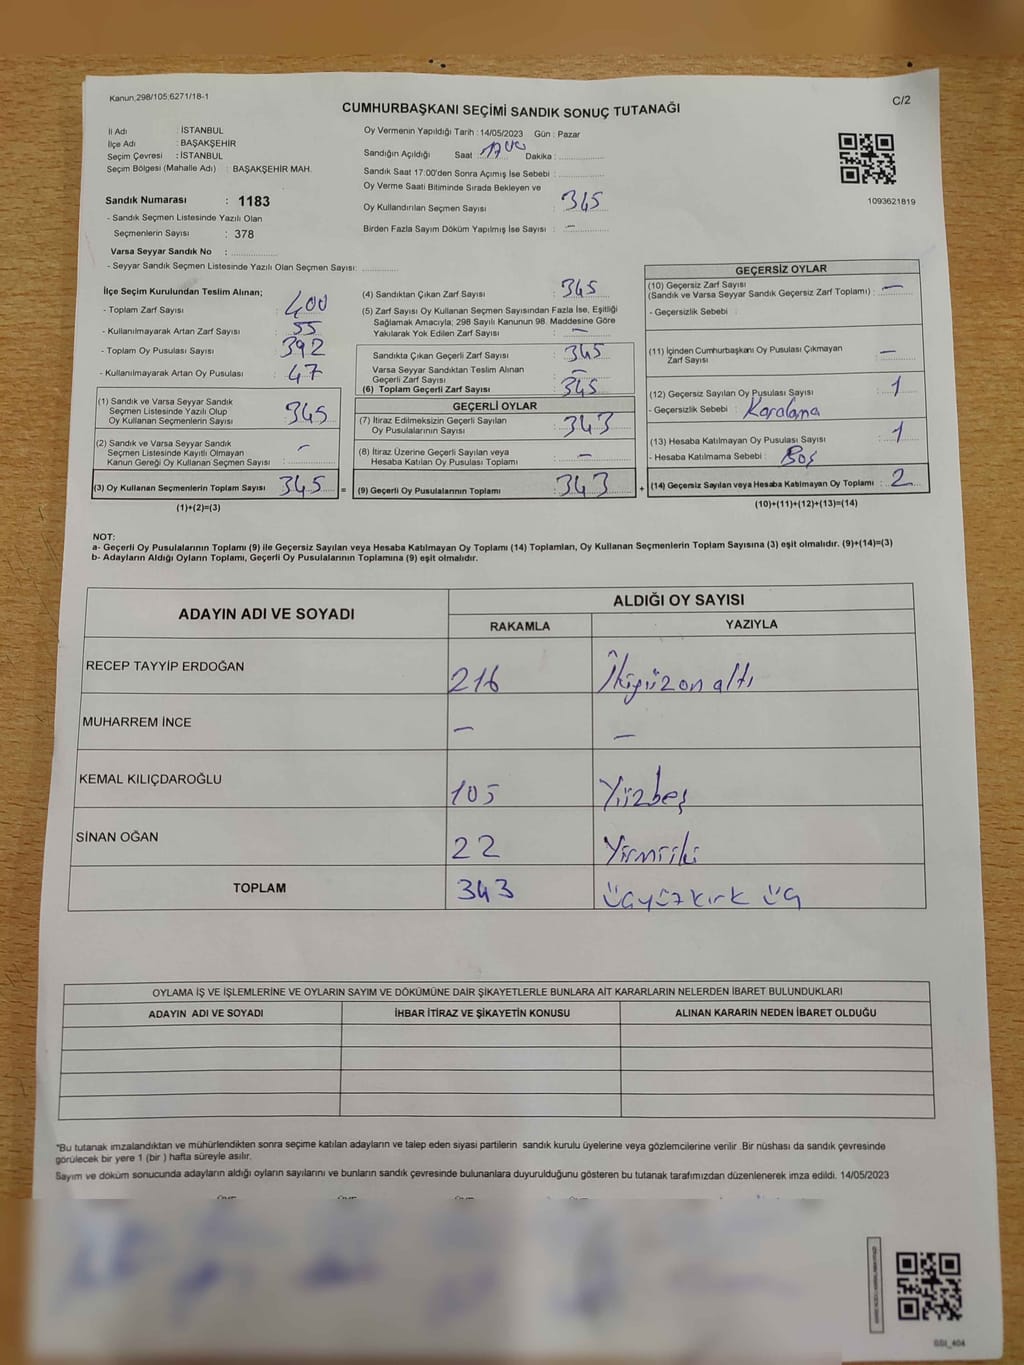 Kanun,298/105;6271/18-1
CUMHURBAŞKANI SEÇİMİ SANDIK SONUÇ TUTANAĞI
C/2
İl Adı : İSTANBUL
İlçe Adı : BAŞAKŞEHİR
Seçim Çevresi : İSTANBUL
Seçim Bölgesi (Mahalle Adı) : BAŞAKŞEHİR MAH.
Sandık Numarası : 1183
- Sandık Seçmen Listesinde Yazılı Olan
Seçmenlerin Sayısı : 378
Varsa Seyyar Sandık No :
- Seyyar Sandık Seçmen Listesinde Yazılı Olan Seçmen Sayısı:
Oy Vermenin Yapıldığı Tarih : 14/05/2023 Gün : Pazar
Sandığın Açıldığı Saat : 17 00 Dakika :
Sandık Saat 17:00'den Sonra Açımış İse Sebebi :
Oy Verme Saati Bitiminde Sırada Bekleyen ve
Oy Kullandırılan Seçmen Sayısı : 345
Birden Fazla Sayım Döküm Yapılmış İse Sayısı : –
1093621819
İlçe Seçim Kurulundan Teslim Alınan;
- Toplam Zarf Sayısı : 400
- Kullanılmayarak Artan Zarf Sayısı : 55
- Toplam Oy Pusulası Sayısı : 392
- Kullanılmayarak Artan Oy Pusulası : 47
(1) Sandık ve Varsa Seyyar Sandık
Seçmen Listesinde Yazılı Olup
Oy Kullanan Seçmenlerin Sayısı : 345
(2) Sandık ve Varsa Seyyar Sandık
Seçmen Listesinde Kayıtlı Olmayan
Kanun Gereği Oy Kullanan Seçmen Sayısı : –
(3) Oy Kullanan Seçmenlerin Toplam Sayısı : 345 =
(1)+(2)=(3)
(4) Sandıktan Çıkan Zarf Sayısı : 345
(5) Zarf Sayısı Oy Kullanan Seçmen Sayısından Fazla İse, Eşitliği
Sağlamak Amacıyla; 298 Sayılı Kanunun 98. Maddesine Göre
Yakılarak Yok Edilen Zarf Sayısı : –
Sandıkta Çıkan Geçerli Zarf Sayısı : 345
Varsa Seyyar Sandıktan Teslim Alınan
Geçerli Zarf Sayısı : –
(6) Toplam Geçerli Zarf Sayısı : 345
GEÇERLİ OYLAR
(7) İtiraz Edilmeksizin Geçerli Sayılan
Oy Pusulalarının Sayısı : 343
(8) İtiraz Üzerine Geçerli Sayılan veya
Hesaba Katılan Oy Pusulası Toplamı : –
(9) Geçerli Oy Pusulalarının Toplamı : 343 +
GEÇERSİZ OYLAR
(10) Geçersiz Zarf Sayısı
(Sandık ve Varsa Seyyar Sandık Geçersiz Zarf Toplamı) : –
- Geçersizlik Sebebi :
(11) İçinden Cumhurbaşkanı Oy Pusulası Çıkmayan
Zarf Sayısı : –
(12) Geçersiz Sayılan Oy Pusulası Sayısı : 1
- Geçersizlik Sebebi : Karalama
(13) Hesaba Katılmayan Oy Pusulası Sayısı : 1
- Hesaba Katılmama Sebebi : Boş
(14) Geçersiz Sayılan veya Hesaba Katılmayan Oy Toplamı : 2
(10)+(11)+(12)+(13)=(14)
NOT:
a- Geçerli Oy Pusulalarının Toplamı (9) ile Geçersiz Sayılan veya Hesaba Katılmayan Oy Toplamı (14) Toplamları, Oy Kullanan Seçmenlerin Toplam Sayısına (3) eşit olmalıdır. (9)+(14)=(3)
b- Adayların Aldığı Oyların Toplamı, Geçerli Oy Pusulalarının Toplamına (9) eşit olmalıdır.
ADAYIN ADI VE SOYADI
ALDIĞI OY SAYISI
RAKAMLA YAZIYLA
RECEP TAYYİP ERDOĞAN 216 İkiyüzonaltı
MUHARREM İNCE – –
KEMAL KILIÇDAROĞLU 105 Yüzbeş
SİNAN OĞAN 22 Yirmiiki
TOPLAM 343 üçyüzkırk üç
OYLAMA İŞ VE İŞLEMLERİNE VE OYLARIN SAYIM VE DÖKÜMÜNE DAİR ŞİKAYETLERLE BUNLARA AİT KARARLARIN NELERDEN İBARET BULUNDUKLARI
ADAYIN ADI VE SOYADI İHBAR İTİRAZ VE ŞİKAYETİN KONUSU ALINAN KARARIN NEDEN İBARET OLDUĞU
"Bu tutanak imzalandıktan ve mühürlendikten sonra seçime katılan adayların ve talep eden siyasi partilerin sandık kurulu üyelerine veya gözlemcilerine verilir .Bir nüshası da sandık çevresinde
görülecek bir yere 1 (bir ) hafta süreyle asılır.
Sayım ve döküm sonucunda adayların aldığı oyların sayılarını ve bunların sandık çevresinde bulunanlara duyurulduğunu gösteren bu tutanak tarafımızdan düzenlenerek imza edildi. 14/05/2023